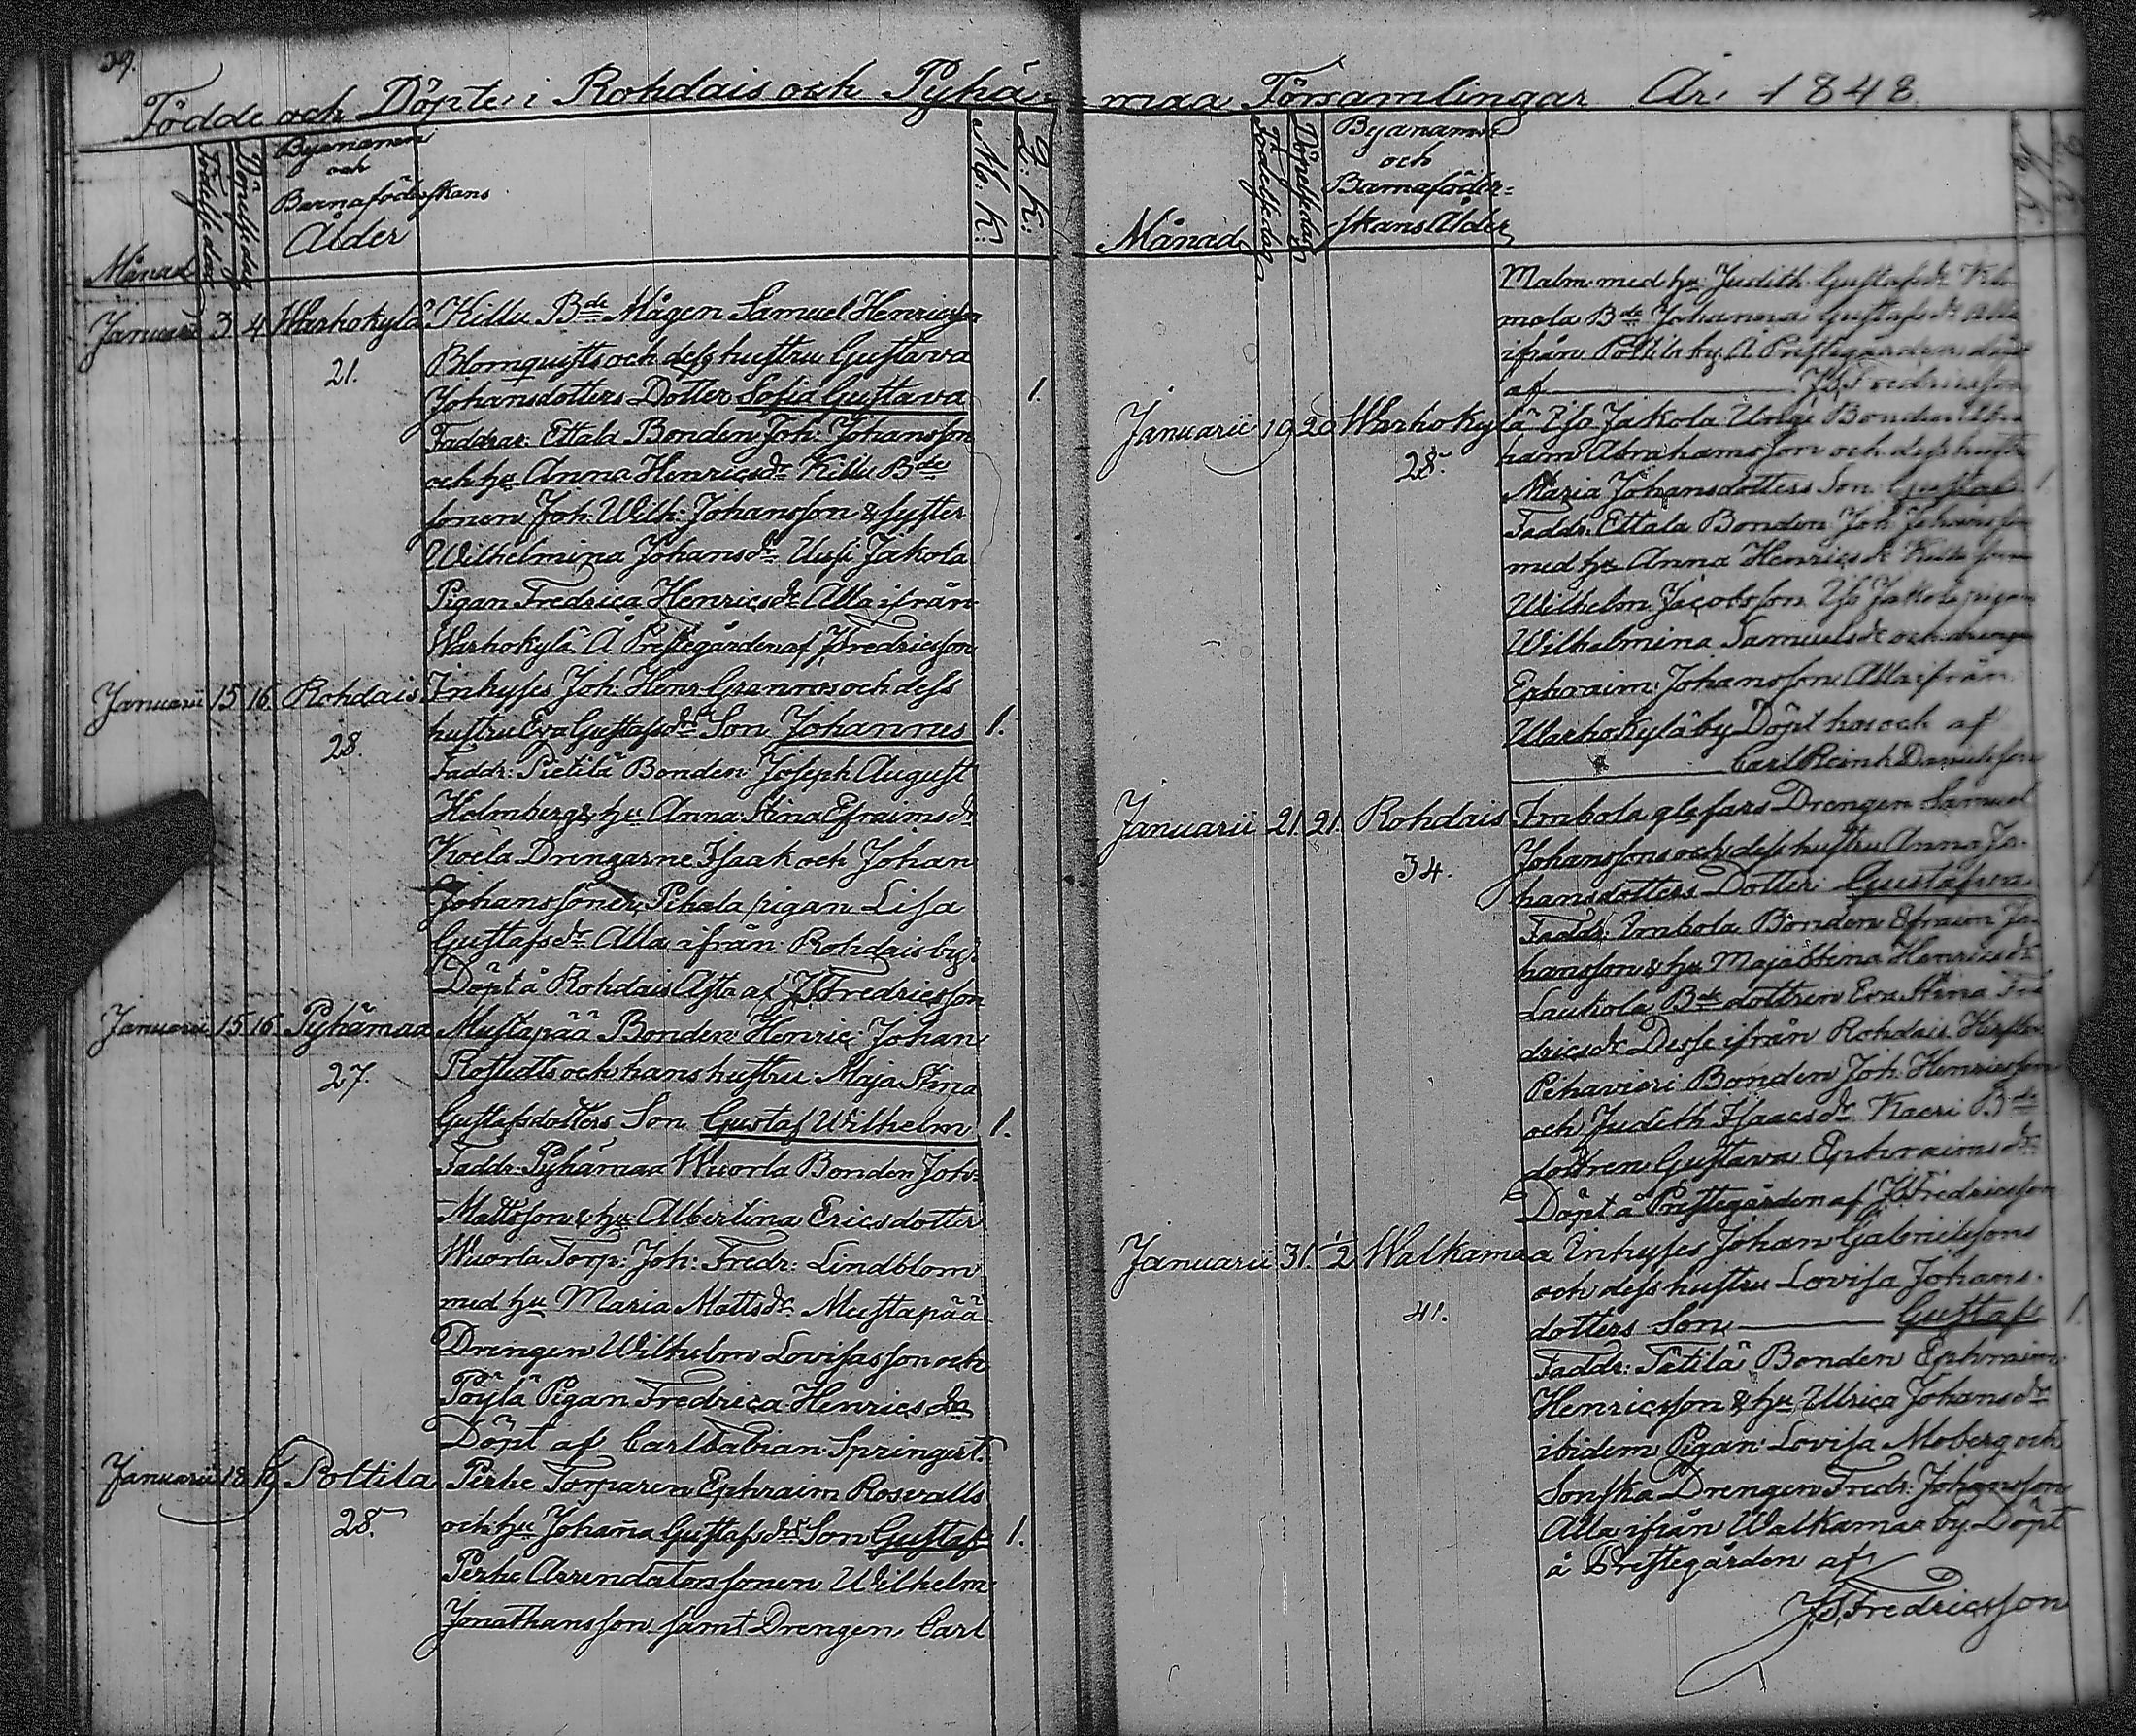 39.
Födde och Döpte i Rohdais och Pyhä-
Månad Födelsedag Döpelsedag Byanamn
och
Barnaföderskans
Ålder M. K: Q. K:
Januarii 3 4 Warhokylä Killu Bde Mågen Samuel Henricsson
21. Blomquists och dess hustru Gustava
Johansdotters Dotter Sofia Gustava 1.
Faddrar: Ettala Bonden Joh: Johansson
och hu Anna Henricsdr Killu Bde
sonen Joh: Wilh: Johansson & syster
Wilhelmina Johansdr Uusi Jakola
Pigan Fredrica Henricsdr Alla ifrån
Warhokylä Å Prestegården af JFredricsson
Januarii 15 16 Rohdais Inhyses Joh: Henr Granroos och dess
28. hustru Eva Gustafsdrs Son Johannes 1.
Faddr: Pietilä Bonden Joseph August
Holmberg & hu Anna Stina Efraimsdr
Drengarne Isaak och Johan
Johanssöner, Pihala pigan Lisa
Gustafsdr Alla ifrån Rohdais by
Döpt å Rohdais af JFredricsson
Januarii 15 16 Pyhämaa Mustapää Bonden Henric Johan
27. Rostedts och hans hustru Maja Stina
Gustafsdotters Son Gustaf Wilhelm 1.
Faddr. Pyhämaa Wuorla Bonden Joh:
Mattsson & hu Albertina Ericsdotter
Wuorla Torp: Joh: Fredr: Lindblom
med hu Maria Mattsdr Mustapää
Drengen Wilhelm Lovisasson och
Pöylä Pigan Fredrica Henricsdr
Döpt af Carl Fabian Springert.
Januarii 18 19 Polttila Perhe Torparen Ephraim Rosvalls
28. och hu Johana Gustafsdrs Son Gustaf 1.
Perhe Arrendatorssonen Wilhelm
Jonathansson samt Drengen Carl
maa Församlingar År 1848
Månad Födelsedag Döpelsedag Byanamn
och
Barnaföder-
skans Ålder
Malm med hu Judith Gustafsdr
mola Bde Johanna Gustafsdr Alla
ifrån Polttila by. Å Prestegården döpt
af JFredricsson
Januarii 19 20 Warhokylä Iso Jakola Unge Bonden Abra
28. ham Abrahamsson och dess hustru
Maria Johansdotters Son Gustaf 1
Faddr. Ettala Bonden Joh Johansson
med hu Anna Henricsdr Killu
Wilhelm Jacobsson Iso Jakola pigan
Wilhelmina Samuelsdr och drengen
Ephraim Johansson Alla ifrån
Warhokylä by Döpt af
Carl Reinh Danielsson
Januarii 21. 21. Rohdais Drengen Samuel
34. Johanssons och dess hustru Anna Jo-
hansdotters Dotter Gustafva
Faddr. Bonden Efraim Jo-
hansson & hu Maja Stina Henricsdr
Laukola Bde dottren Eva Stina Fre
dricsdr Desse ifrån Rohdais.
Pihavieri Bonden Joh: Henricsson
och Judith Isaacsdr Kaeri Bde
dottren Gustava Ephraimsdr
Döpt å Prestegården af JFredricsson
Januarii 31. 1/2 Walkamaa Inhyses Johan Gabrielssons
41. och dess hustru Lovisa Johans-
dotters Son Gustaf 1.
Faddr: Bonden Ephraim
Henricsson & hu Ulrica Johansdr
ibidem Pigan Lovisa Moberg och
Sonska Drengen Fredr: Johansson
Alla ifrån Walkamaa by Döpt
å Prestegården af
JFredricsson